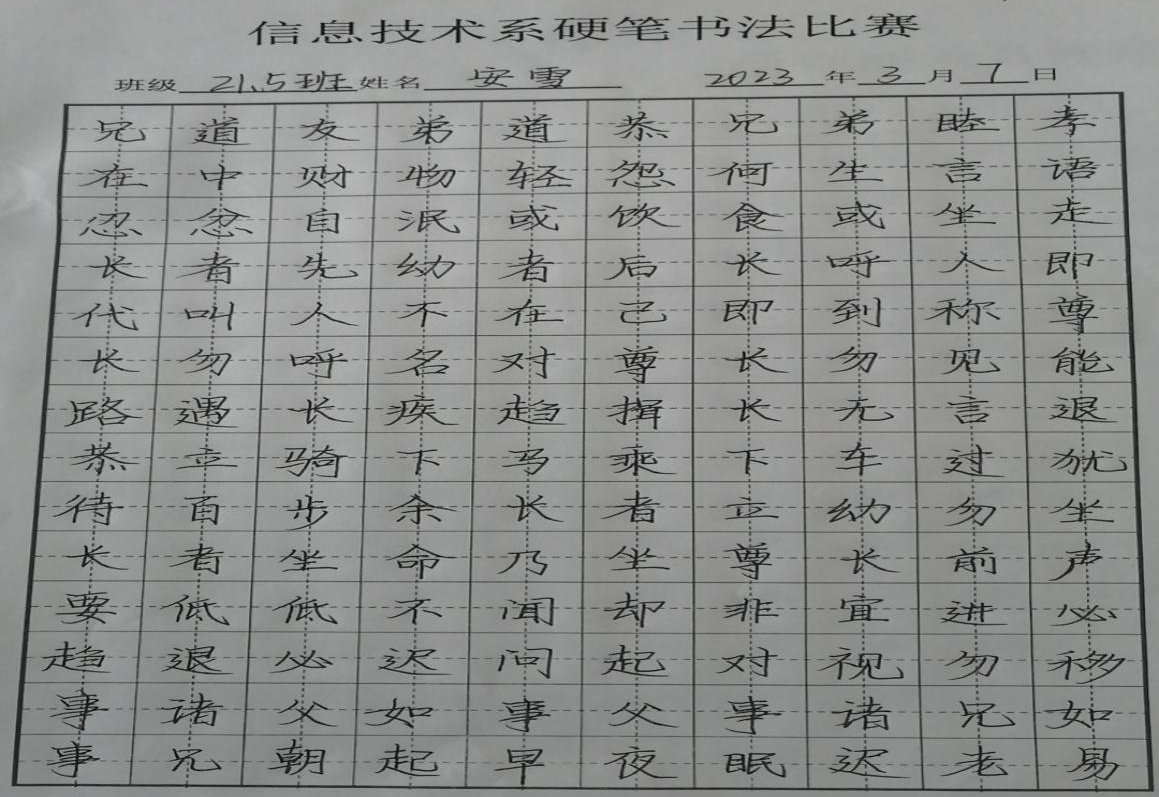 信息技术系硬笔书法比赛
班级 21.5班 姓名 安雪 2023 年 3 月 7 日
兄道友弟道恭兄弟睦孝
在中财物轻怨何生言语
忍忿自泯或饮食或坐走
长者先幼者后长呼人即
代叫人不在己即到称尊
长勿呼名对尊长勿见能
路遇长疾趋揖长无言退
恭立骑下马乘下车过犹
待百步余长者立幼勿坐
长者坐命乃坐尊长前声
要低低不闻却非宜进必
趋退必迟问起对视勿移
事诸父如事父事诸兄如
事兄朝起早夜眠迟老易